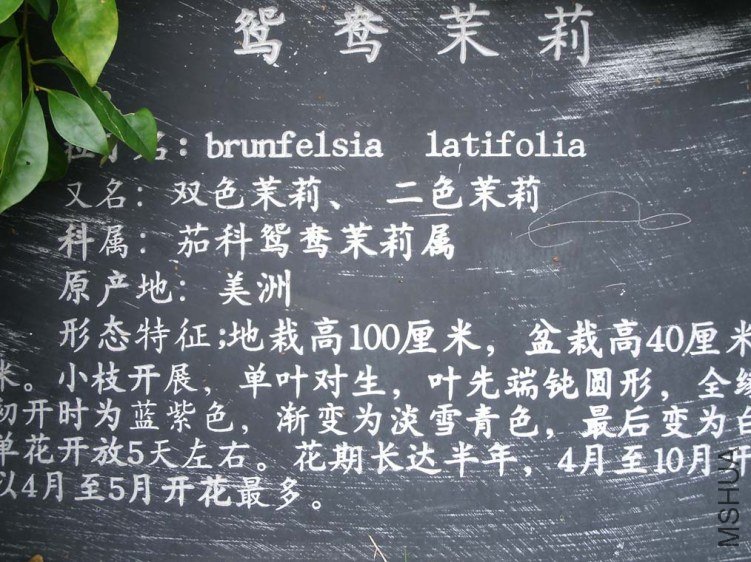 鸳鸯茉莉
拉丁名：brunfelsia latifolia
又名：双色茉莉、 二色茉莉
科属：茄科鸳鸯茉莉属
原产地：美洲
形态特征;地栽高100厘米，盆栽高40厘米
米。小枝开展，单叶对生，叶先端钝圆形，全缘
初开时为蓝紫色，渐变为淡雪青色，最后变为白
单花开放5天左右。花期长达半年，4月至10月开
以4月至5月开花最多。
MSHUA